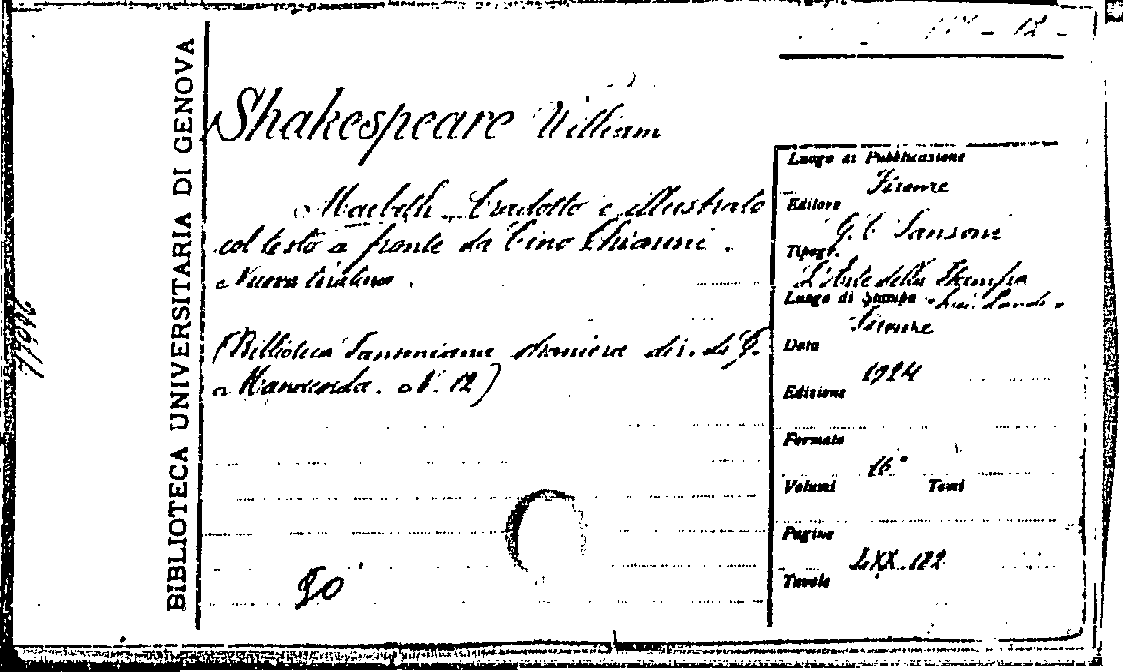 BIBLIOTECA UNIVERSITARIA DI GENOVA
12
Shakespeare William
Macbeth tradotto e illustrato
col testo a fronte da Cino Chiarini.
Nuova tiratura.
(Biblioteca Sansoniana straniera dir. da G.
Manacorda. N. 12)
Luogo di Pubblicazione
Firenze
Editore
G. C. Sansoni
Tipogr.
L'Arte della Stampa
Luogo di Stampa
Firenze
Data
1924
Edizione
Formato
16°
Volumi Tomi
Pagine
LXX-182
Tavole